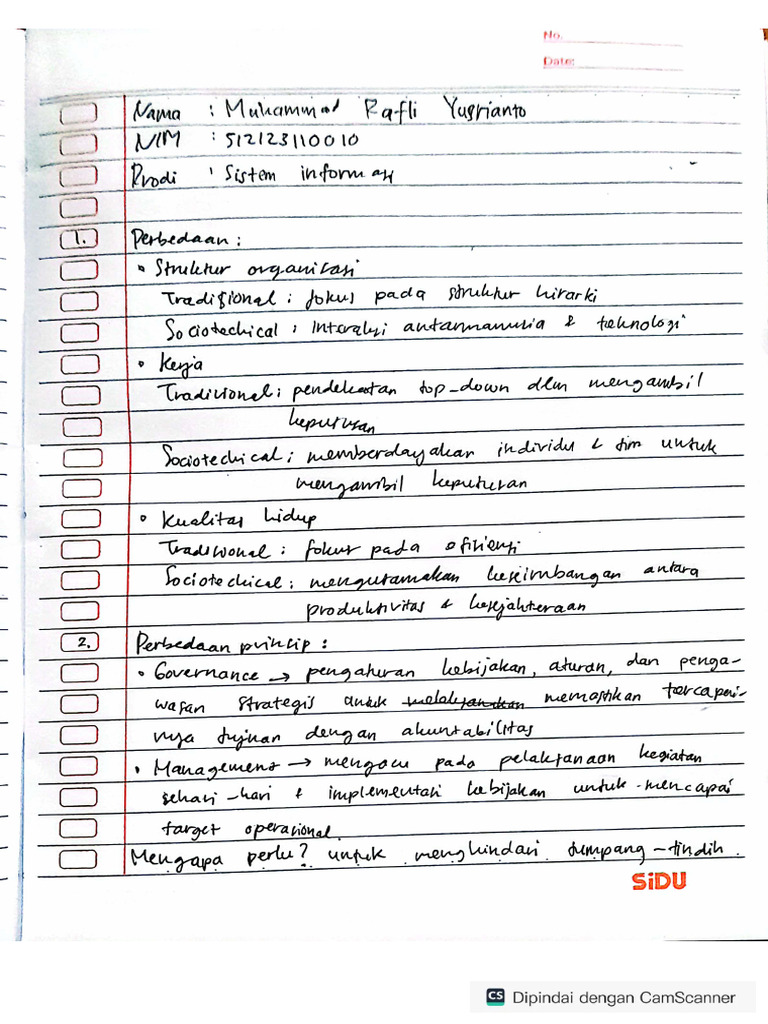 No.
Date:
Nama : Muhammad Rafli Yusrianto
NIM : 512123110010
Prodi : Sistem informasi
1. Perbedaan :
• Struktur organisasi
Tradisional : fokus pada struktur hirarki
Sociotechical : Interaksi antarmanusia & teknologi
• Kerja
Tradisional : pendekatan top-down dlm mengambil
keputusan
Sociotechical : memberdayakan individu & tim untuk
mengambil keputusan
• Kualitas hidup
Tradisional : fokus pada efisiensi
Sociotechical : mengutamakan keseimbangan antara
produktivitas & kesejahteraan
2. Perbedaan prinsip :
• Governance → pengaturan kebijakan, aturan, dan penga-
wasan strategis untuk memastikan tercapai-
nya tujuan dengan akuntabilitas
• Management → mengacu pada pelaksanaan kegiatan
sehari-hari & implementasi kebijakan untuk mencapai
target operasional.
Mengapa perlu? untuk menghindari tumpang-tindih.
SiDU
CS Dipindai dengan CamScanner